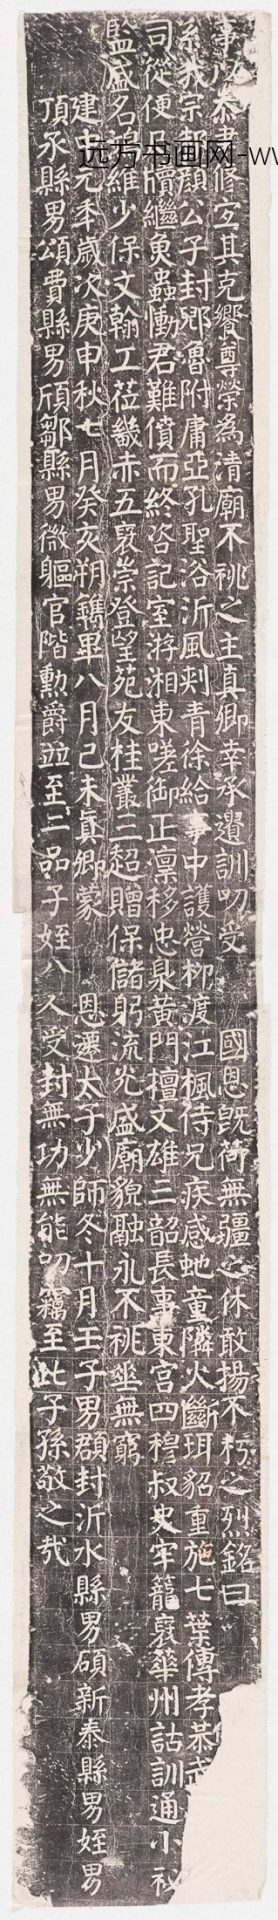 事以恭肅修容其克饗尊榮為清廟不祧之主真卿幸承遺訓叨受　國恩既荷無疆之休敢揚不朽之烈銘曰
系我宗郳顏公子封郳魯附庸亞孔聖浴沂風刺青徐給事中護營柳渡江楓侍兄疾感虵童隣火斷珥貂重施七葉傳孝恭
司從便民牘繼魚蟲慟君難僨而終咨記室游湘東嗟御正凜移忠泉黃門擅文雄三韶長事東宮四穆叔史牢籠裒華州詁訓通小祕
監盛名鴻維少保文翰工莅畿赤五裒崇登望苑友桂叢三超贈保儲躬流光盛廟貌融永不祧垂無窮
建中元年歲次庚申秋七月癸亥朔鐫畢八月己未真卿蒙　恩遷太子少師冬十月壬子男頵封沂水縣男碩新泰縣男姪男
頂承縣男頌費縣男頎鄒縣男微軀官階勳爵竝至二品子姪八人受封無功無能叨竊至此子孫敬之哉
远方书画网-ww